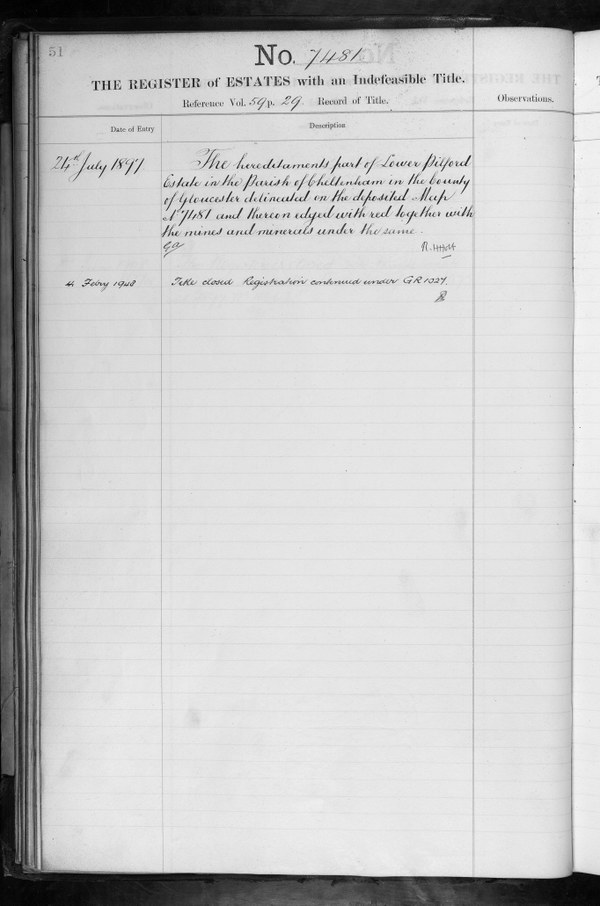 51
No. 7481
THE REGISTER of ESTATES with an Indefeasible Title.
Reference Vol. 59 p. 29. Record of Title.
Observations.
Date of Entry
Description
24th July 1897
The hereditaments part of Lower Pilford
Estate in the Parish of Cheltenham in the County
of Gloucester delineated on the deposited Map
No 7481 and thereon edged with red together with
the mines and minerals under the same.
4 Febry 1948
Title closed Registration continued under GR 1027.